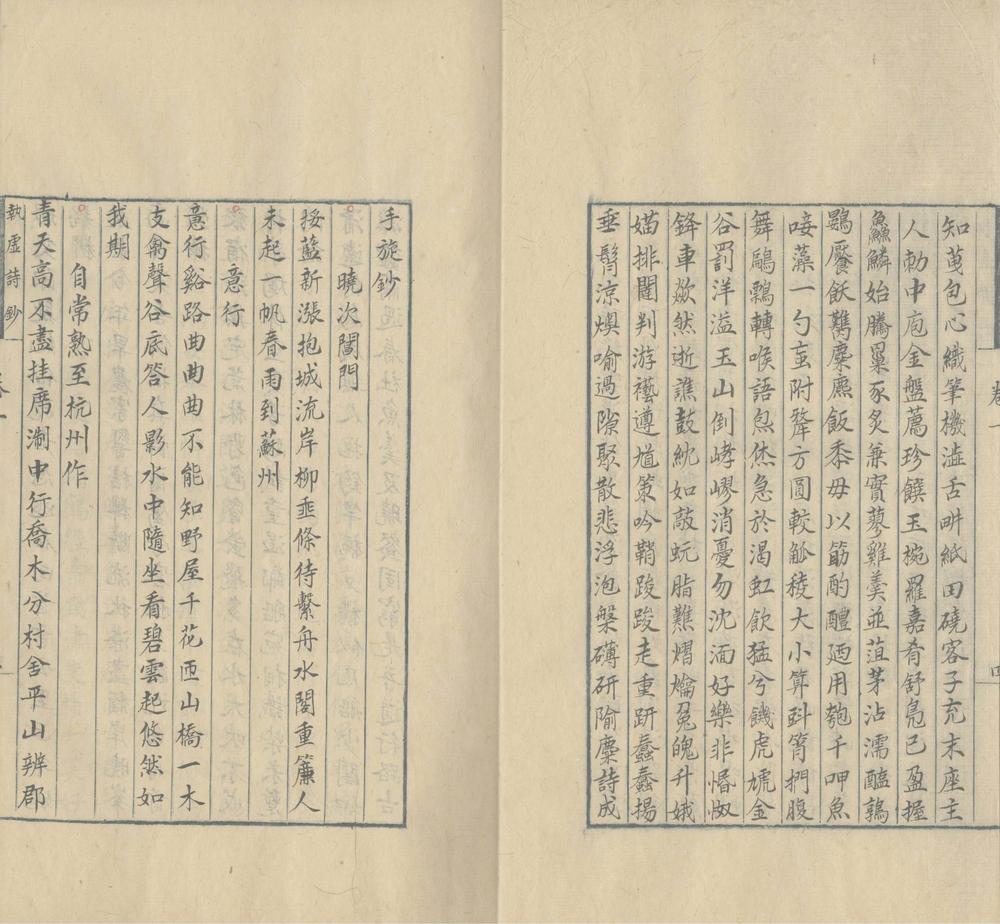 知蒐包心織筆機澁舌畊紙田磽客子充末座主
人勑中庖金盤薦珍饌玉椀羅嘉肴舒鳧已盈握
鱻鱗始騰罤豕炙兼實蓼雞羹並菹茅沾濡醢鶉
鷃饜飫鷻麋麃飯黍毋以筯酌醴廼用匏千呷魚
唼藻一勺䖟附犛方圓較觚稜大小算㪷筲捫腹
舞鷗鶚轉喉語炰烋急於渴虹飲猛兮饑虎虓金
谷罰洋溢玉山倒崝嵺消憂勿沈湎好樂非惛怓
鋒車欻然逝譙鼓紞如敲蚖脂難熠爚冤魄升娥
媌排闥判游襼遵尶策吟鞘踆踆走重趼蠢蠢揚
垂髾涼燠喻過隙聚散悲浮泡槃礴研隃麋詩成
手旋鈔
曉次閶門
挼藍新漲抱城流岸柳垂條待繫舟水閣重簾人
未起一帆春雨到蘇州
意行
意行谿路曲曲曲不能知野屋千花匝山橋一木
支禽聲谷底答人影水中隨坐看碧雲起悠然如
我期
自常熟至杭州作
青天高不盡挂席淛中行喬木分村舍平山辨郡
執虛詩鈔